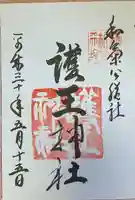 和氣公綜社
護王神社
平成三十年五月十五日